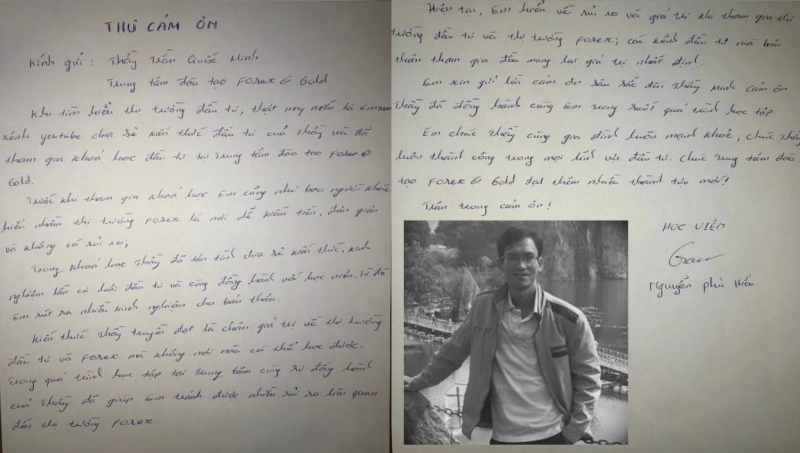 THƯ CẢM ƠN
Kính gửi : Thầy Trần Quốc Minh
Trung tâm đào tạo Forex & Gold
Khi tìm hiểu thị trường đầu tư, thật may mắn là Em xem
kênh youtube chia sẻ kiến thức đầu tư của Thầy và đã
tham gia khoá học đầu tư tại Trung tâm đào tạo Forex &
Gold.
Trước khi tham gia khoá học Em cũng như bao người khác
nhìn nhận thị trường Forex là nơi dễ kiếm tiền, đơn giản
và không có rủi ro;
Trong khoá học Thầy đã tận tình chia sẻ kiến thức, kinh
nghiệm lẫn cơ hội đầu tư và cùng đồng hành với học viên. Từ đó
Em rút ra nhiều kinh nghiệm cho bản thân.
Kiến thức Thầy truyền đạt là chân giá trị về thị trường
đầu tư và Forex mà không nơi nào có thể học được.
Trong quá trình học tập tại Trung tâm cùng sự đồng hành
của Thầy đã giúp Em tránh được nhiều rủi ro liên quan
đến thị trường Forex.
Hiện tại, Em hiểu về rủi ro và giá trị khi tham gia thị
trường đầu tư và thị trường Forex; các kênh đầu tư mà bản
thân tham gia đều mang lại giá trị nhất định.
Em xin gửi lời cảm ơn sâu sắc đến Thầy Minh cảm ơn
Thầy đã đồng hành cùng Em trong suốt quá trình học tập
Em chúc Thầy cùng gia đình luôn mạnh khoẻ, chúc Thầy
luôn thành công trong mọi lĩnh vực đầu tư. Chúc Trung tâm đào
tạo Forex & Gold đạt thêm nhiều thành tựu mới!
Trân trọng cảm ơn!
HỌC VIÊN
Nguyễn Phú Hiếu